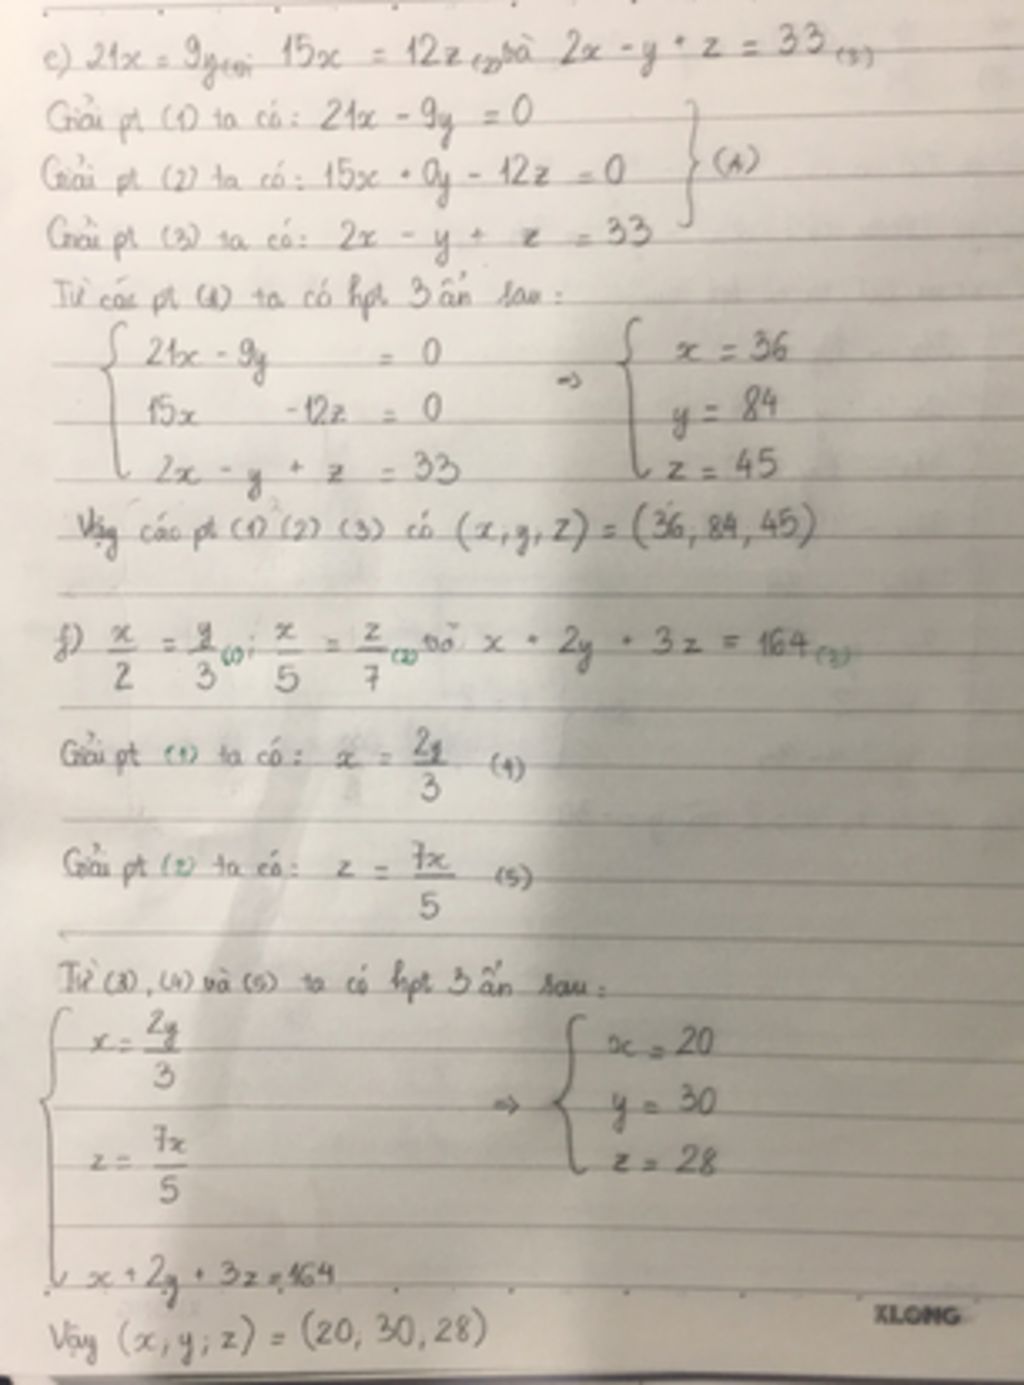 e) 21x = 9y (1); 15x = 12z (2) và 2x - y + z = 33 (3)
Giải pt (1) ta có: 21x - 9y = 0
Giải pt (2) ta có: 15x + 0y - 12z = 0 } (A)
Giải pt (3) ta có: 2x - y + z = 33
Từ các pt (A) ta có hpt 3 ẩn sau:
{ 21x - 9y = 0 => { x = 36
15x - 12z = 0 y = 84
2x - y + z = 33 z = 45
Vậy các pt (1) (2) (3) có (x, y, z) = (36, 84, 45)
f) x/2 = y/3 (1); x/5 = z/7 (2) và x + 2y + 3z = 164 (3)
Giải pt (1) ta có: x = 2y/3 (4)
Giải pt (2) ta có: z = 7x/5 (5)
Từ (3), (4) và (5) ta có hpt 3 ẩn sau:
{ x = 2y/3 { x = 20
=> y = 30
z = 7x/5 z = 28
x + 2y + 3z = 164
Vậy (x; y; z) = (20, 30, 28)
XLONG